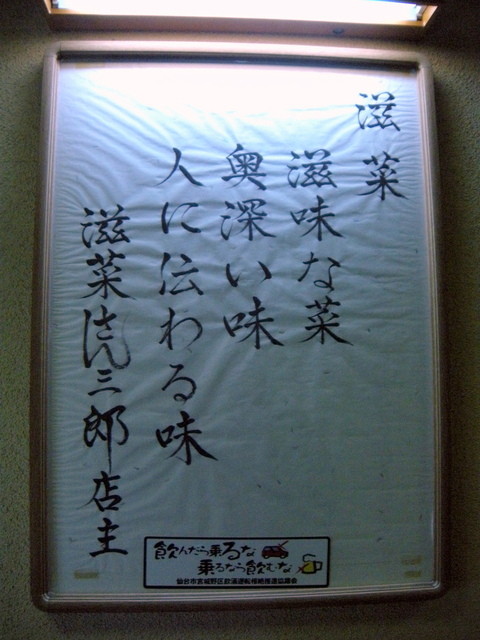 滋菜
滋味な菜
奥深い味
人に伝わる味
滋菜はん三郎店主
飲んだら乗るな
乗るなら飲むな
仙台市宮城野区飲酒運転根絶推進協議会